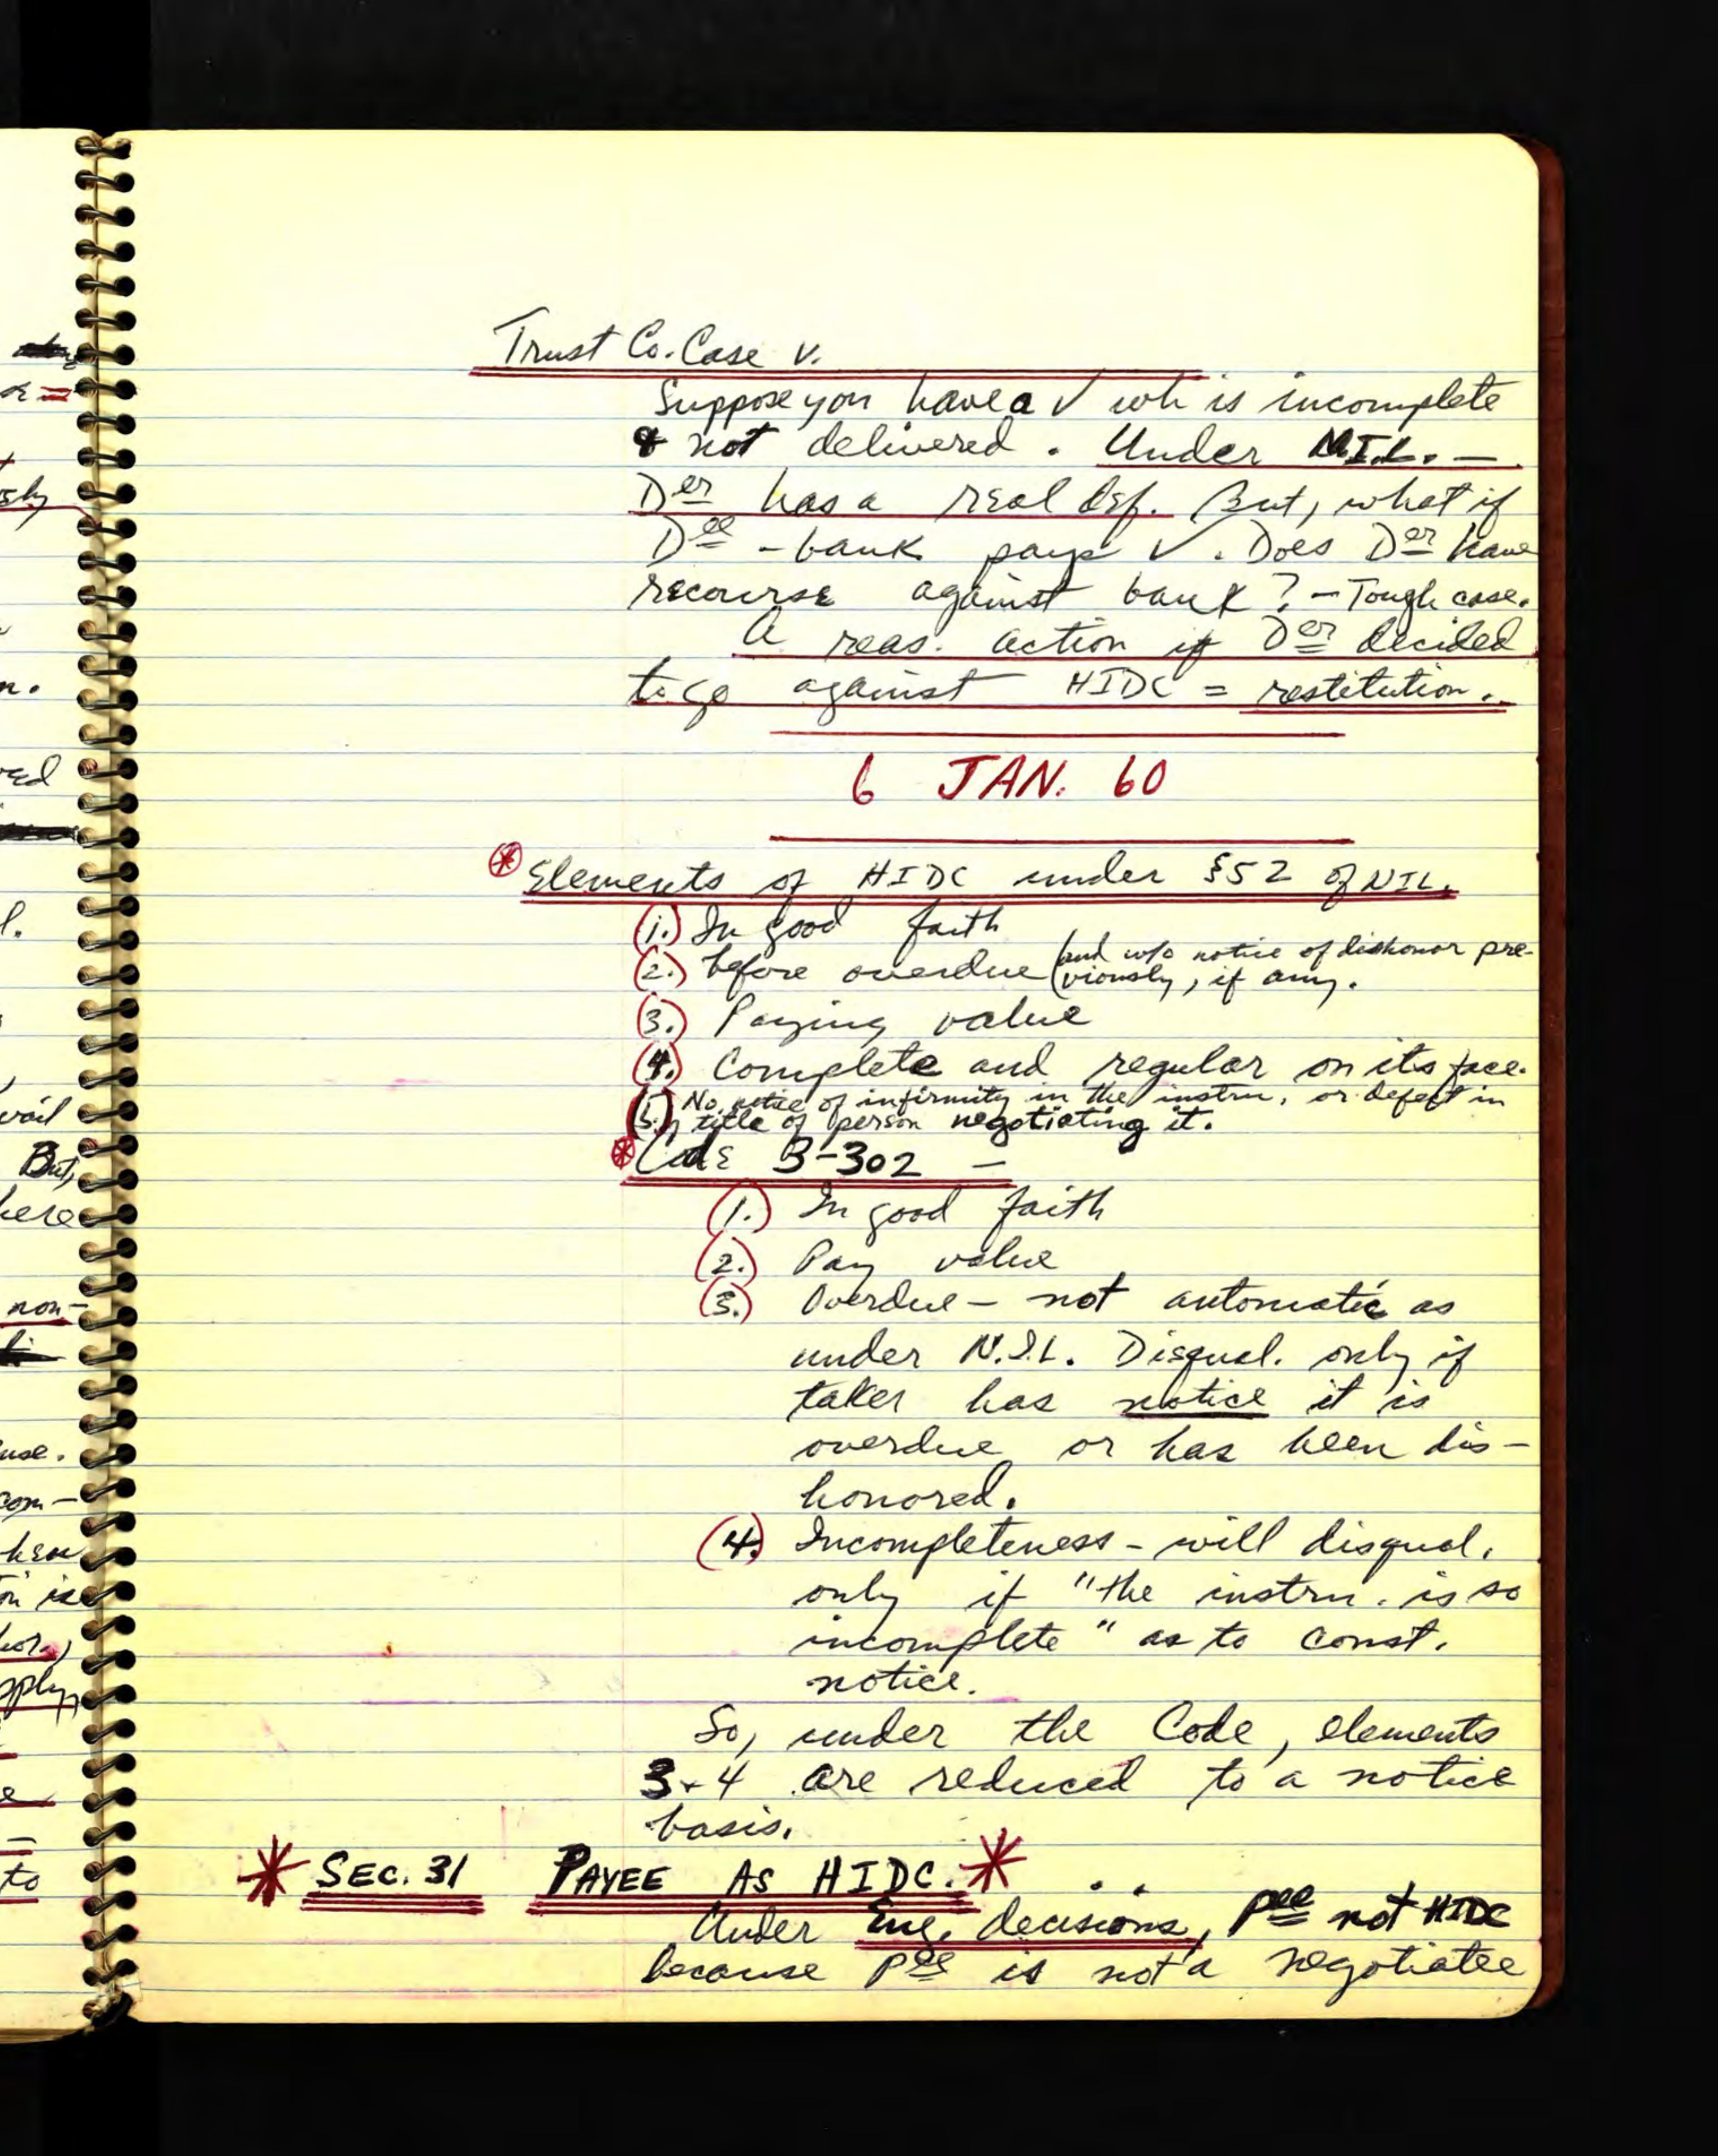 Trust Co. Case v.
Suppose you have a ✓ wh is incomplete
& not delivered. Under N.I.L. —
Der has a real def. But, what if
Dee - bank pays ✓. Does Der have
recourse against bank? — Tough case.
A reas. action if Der decided
to go against HIDC = restitution.
6 JAN. 60
* Elements of HIDC under §52 of NIL.
(1.) In good faith
(2.) before overdue (and w/o notice of dishonor pre-
viously, if any.
(3.) Paying value
(4.) Complete and regular on its face.
(5.) No notice of infirmity in the instru, or defect in
title of person negotiating it.
* Code 3-302 —
(1.) In good faith
(2.) Pay value
(3.) Overdue — not automatic as
under N.I.L. Disqual. only if
taker has notice it is
overdue or has been dis-
honored.
(4.) Incompleteness - will disqual.
only if "the instru. is so
incomplete" as to const.
notice.
So, under the Code, elements
3 + 4 are reduced to a notice
basis.
* SEC. 31 PAYEE AS HIDC. *
Under Eng. decisions, Pee not HIDC
because Pee is not a negotiatee
sly
n.
ved
l.
vail
But,
here
non-
use.
com-
hen
on is
hor.,
pply,
e
to